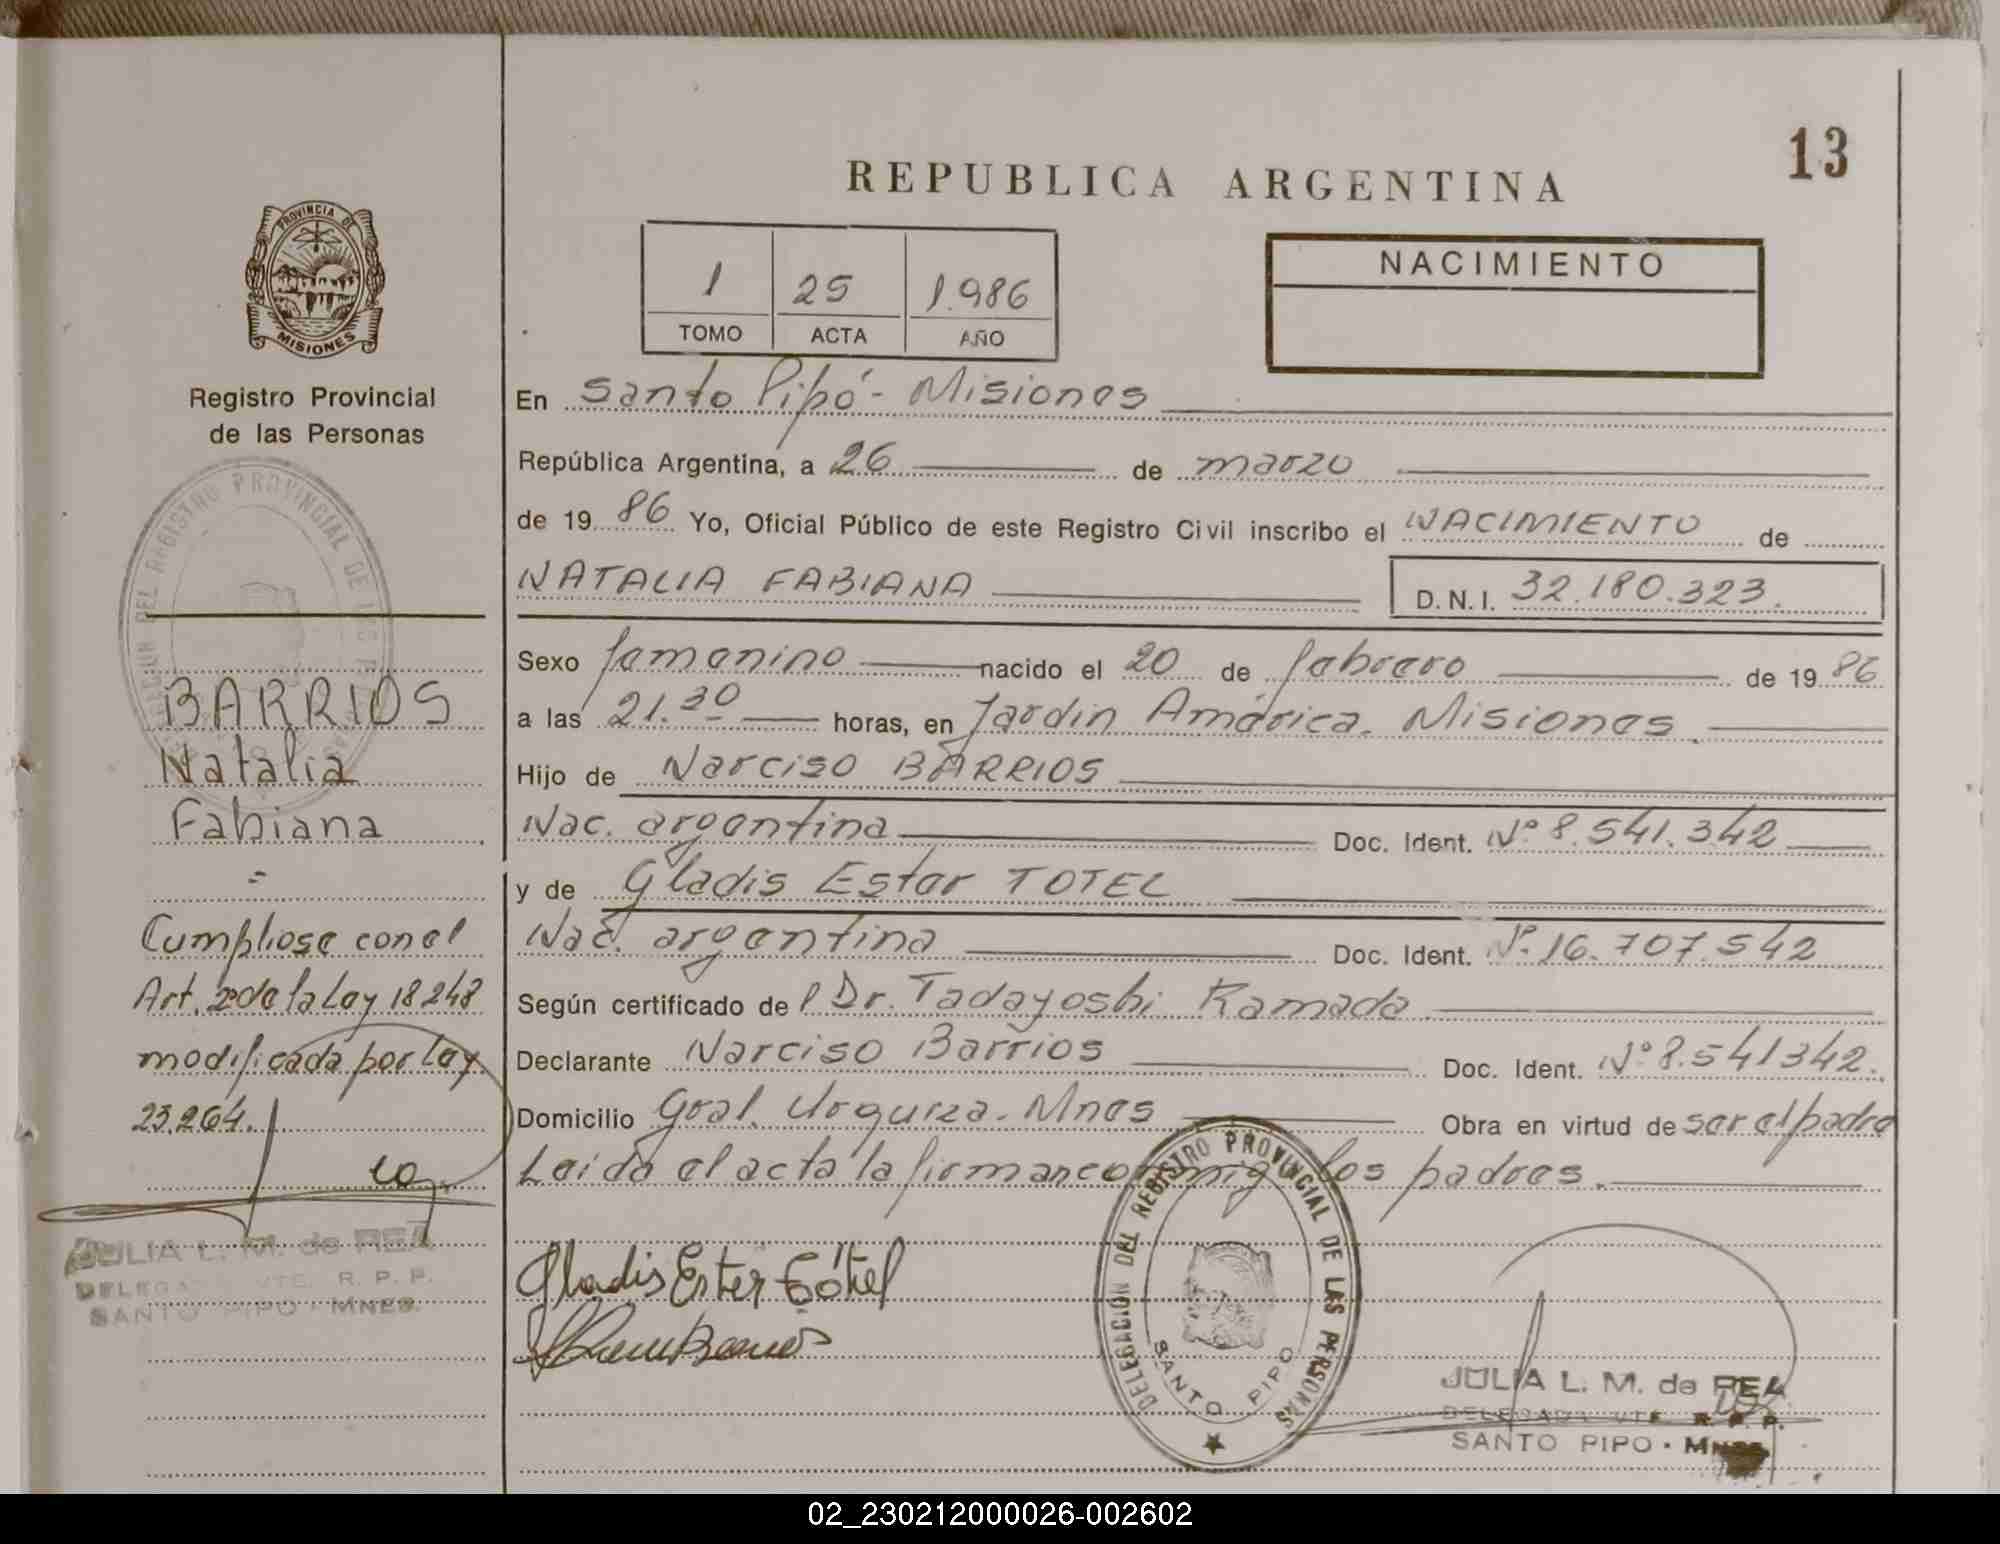 13
REPUBLICA ARGENTINA
PROVINCIA DE
MISIONES
Registro Provincial
de las Personas
1 25 1.986
TOMO ACTA AÑO
NACIMIENTO
En Santo Pipó - Misiones
República Argentina, a 26 de marzo
de 19 86 Yo, Oficial Público de este Registro Civil inscribo el NACIMIENTO de
NATALIA FABIANA D.N.I. 32.180.323.
Sexo femenino nacido el 20 de febrero de 19 86
a las 21.30 horas, en Jardin América. Misiones.
Hijo de Narciso BARRIOS
Nac. argentina Doc. Ident. Nº 8.541.342
y de Gladis Ester TOTEL
Nac. argentina Doc. Ident. Nº 16.707.542
Según certificado de l Dr. Tadayoshi Kamada
Declarante Narciso Barrios Doc. Ident. Nº 8.541342.
Domicilio Gral. Urquiza. Mnes Obra en virtud de ser el padre
Leida el acta la firman conmigo los padres.
Gladis Ester Tótel
DELEGACIÓN DEL REGISTRO PROVINCIAL DE LAS PERSONAS
SANTO PIPO
JULIA L. M. de REA
DELEGADA VTE. R. P. P.
SANTO PIPO - MNES.
DEL REGISTRO PROVINCIAL DE
BARRIOS
Natalia
Fabiana
=
Cumpliose con el
Art. 2º de la Ley 18248
modificada por Ley
23.264.
JULIA L. M. de REA
DELEGADA VTE. R. P. P.
SANTO PIPO - MNES.
02_230212000026-002602